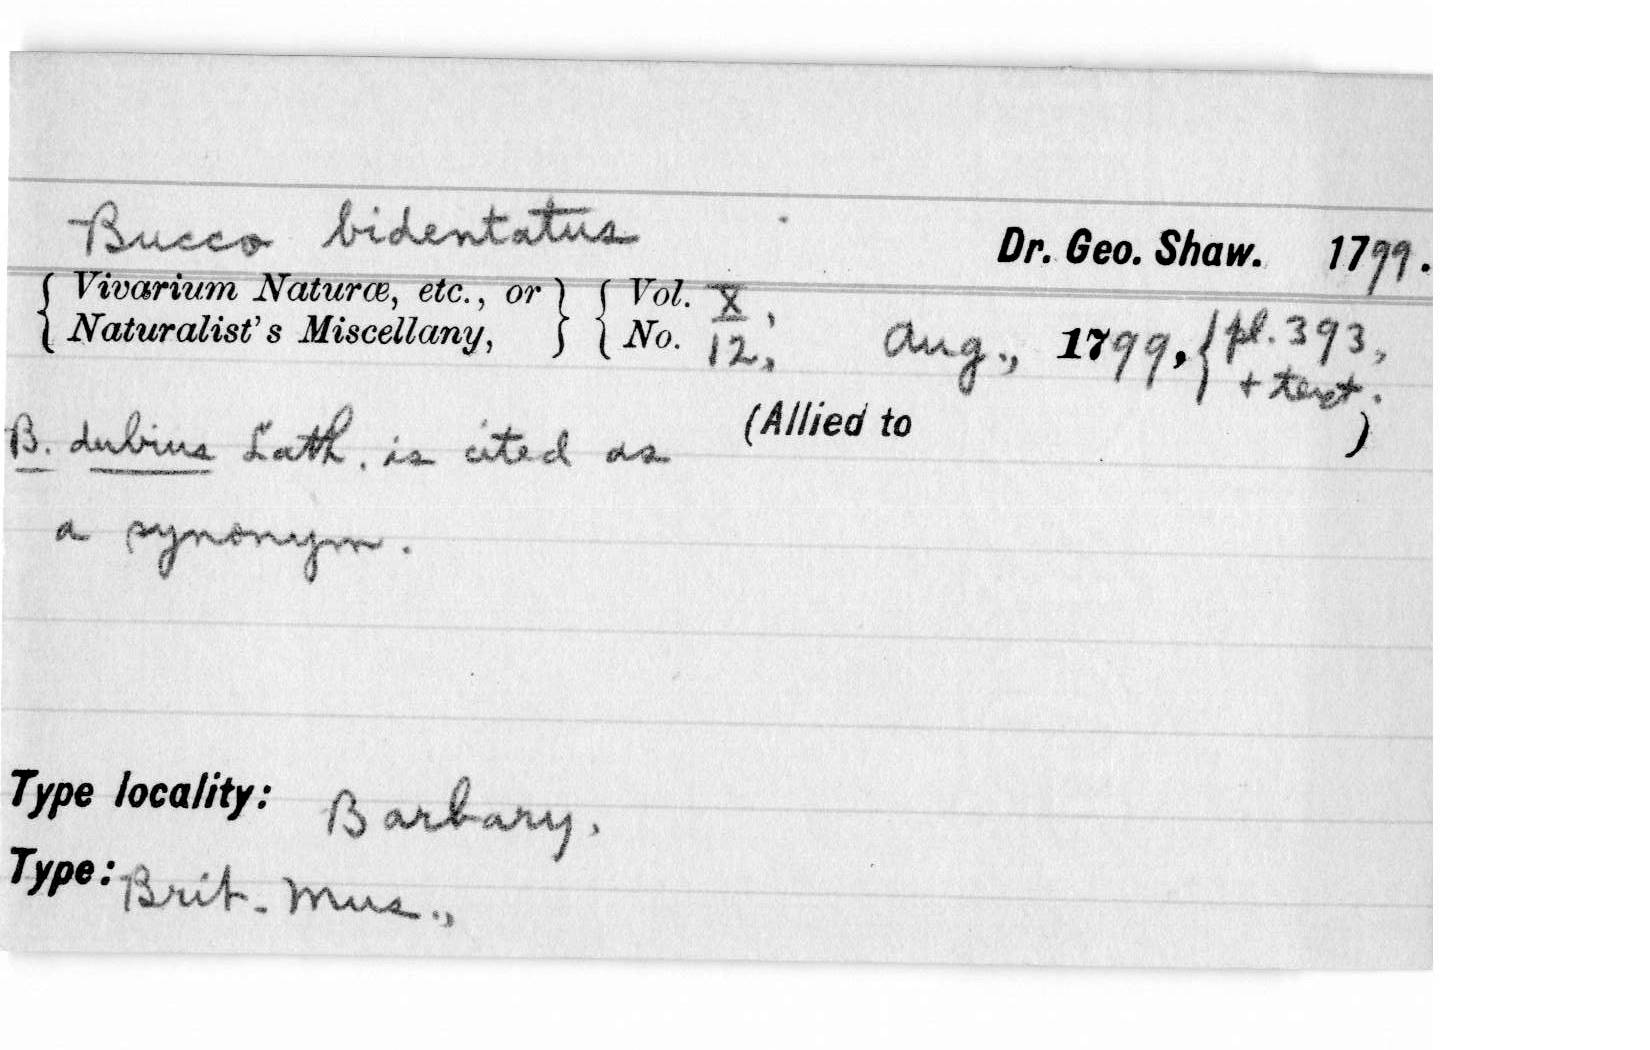 Bucco bidentatus Dr. Geo. Shaw. 1799.
{ Vivarium Naturæ, etc., or } { Vol. X,
{ Naturalist's Miscellany, } { No. 12, Aug., 1799, { pl. 393,
+ text.
(Allied to )
B. dubius Lath. is cited as
a synonym.
Type locality: Barbary.
Type: Brit. Mus.,